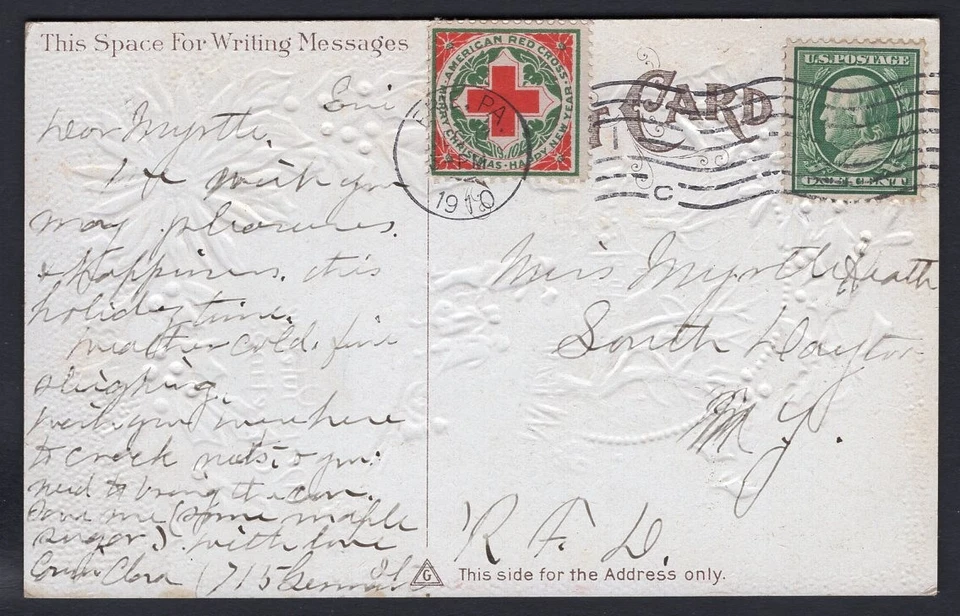 This Space For Writing Messages
Erie
Dear Myrtle,
I wish you
many pleasures
& Happiness, this
holiday time.
Weather cold, fine
sleighing.
wish you were here
to crack nuts, & you
need to bring the
some maple
sugar) with love
Cousin Clara (715
AMERICAN RED CROSS
MERRY CHRISTMAS · HAPPY NEW YEAR
1910
PA.
1910
CARD
C
U.S. POSTAGE
Miss Myrtle Heath
South Dayton
N Y.
R. F. D.
G
This side for the Address only.